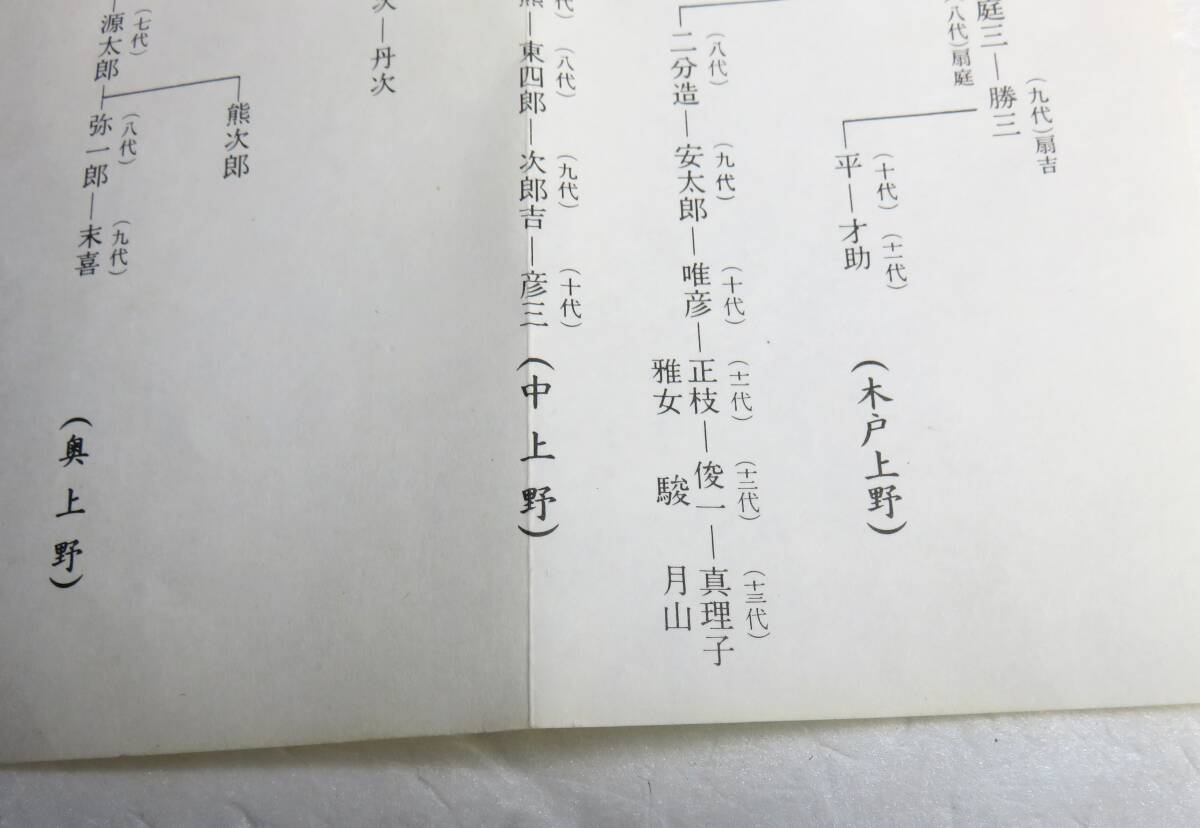 庭三―勝三
(八代)扇庭
(九代)扇吉
平―才助
(十代)(十一代)
(木戸上野)
二分造―安太郎―唯彦―正枝―俊一―真理子
(八代)(九代)(十代)(十一代)(十二代)(十三代)
雅女 駿 月山
熊―東四郎―次郎吉―彦三
(八代)(九代)(十代)
(中上野)
丹次
熊次郎
源太郎―弥一郎―末喜
(七代)(八代)(九代)
(奥上野)